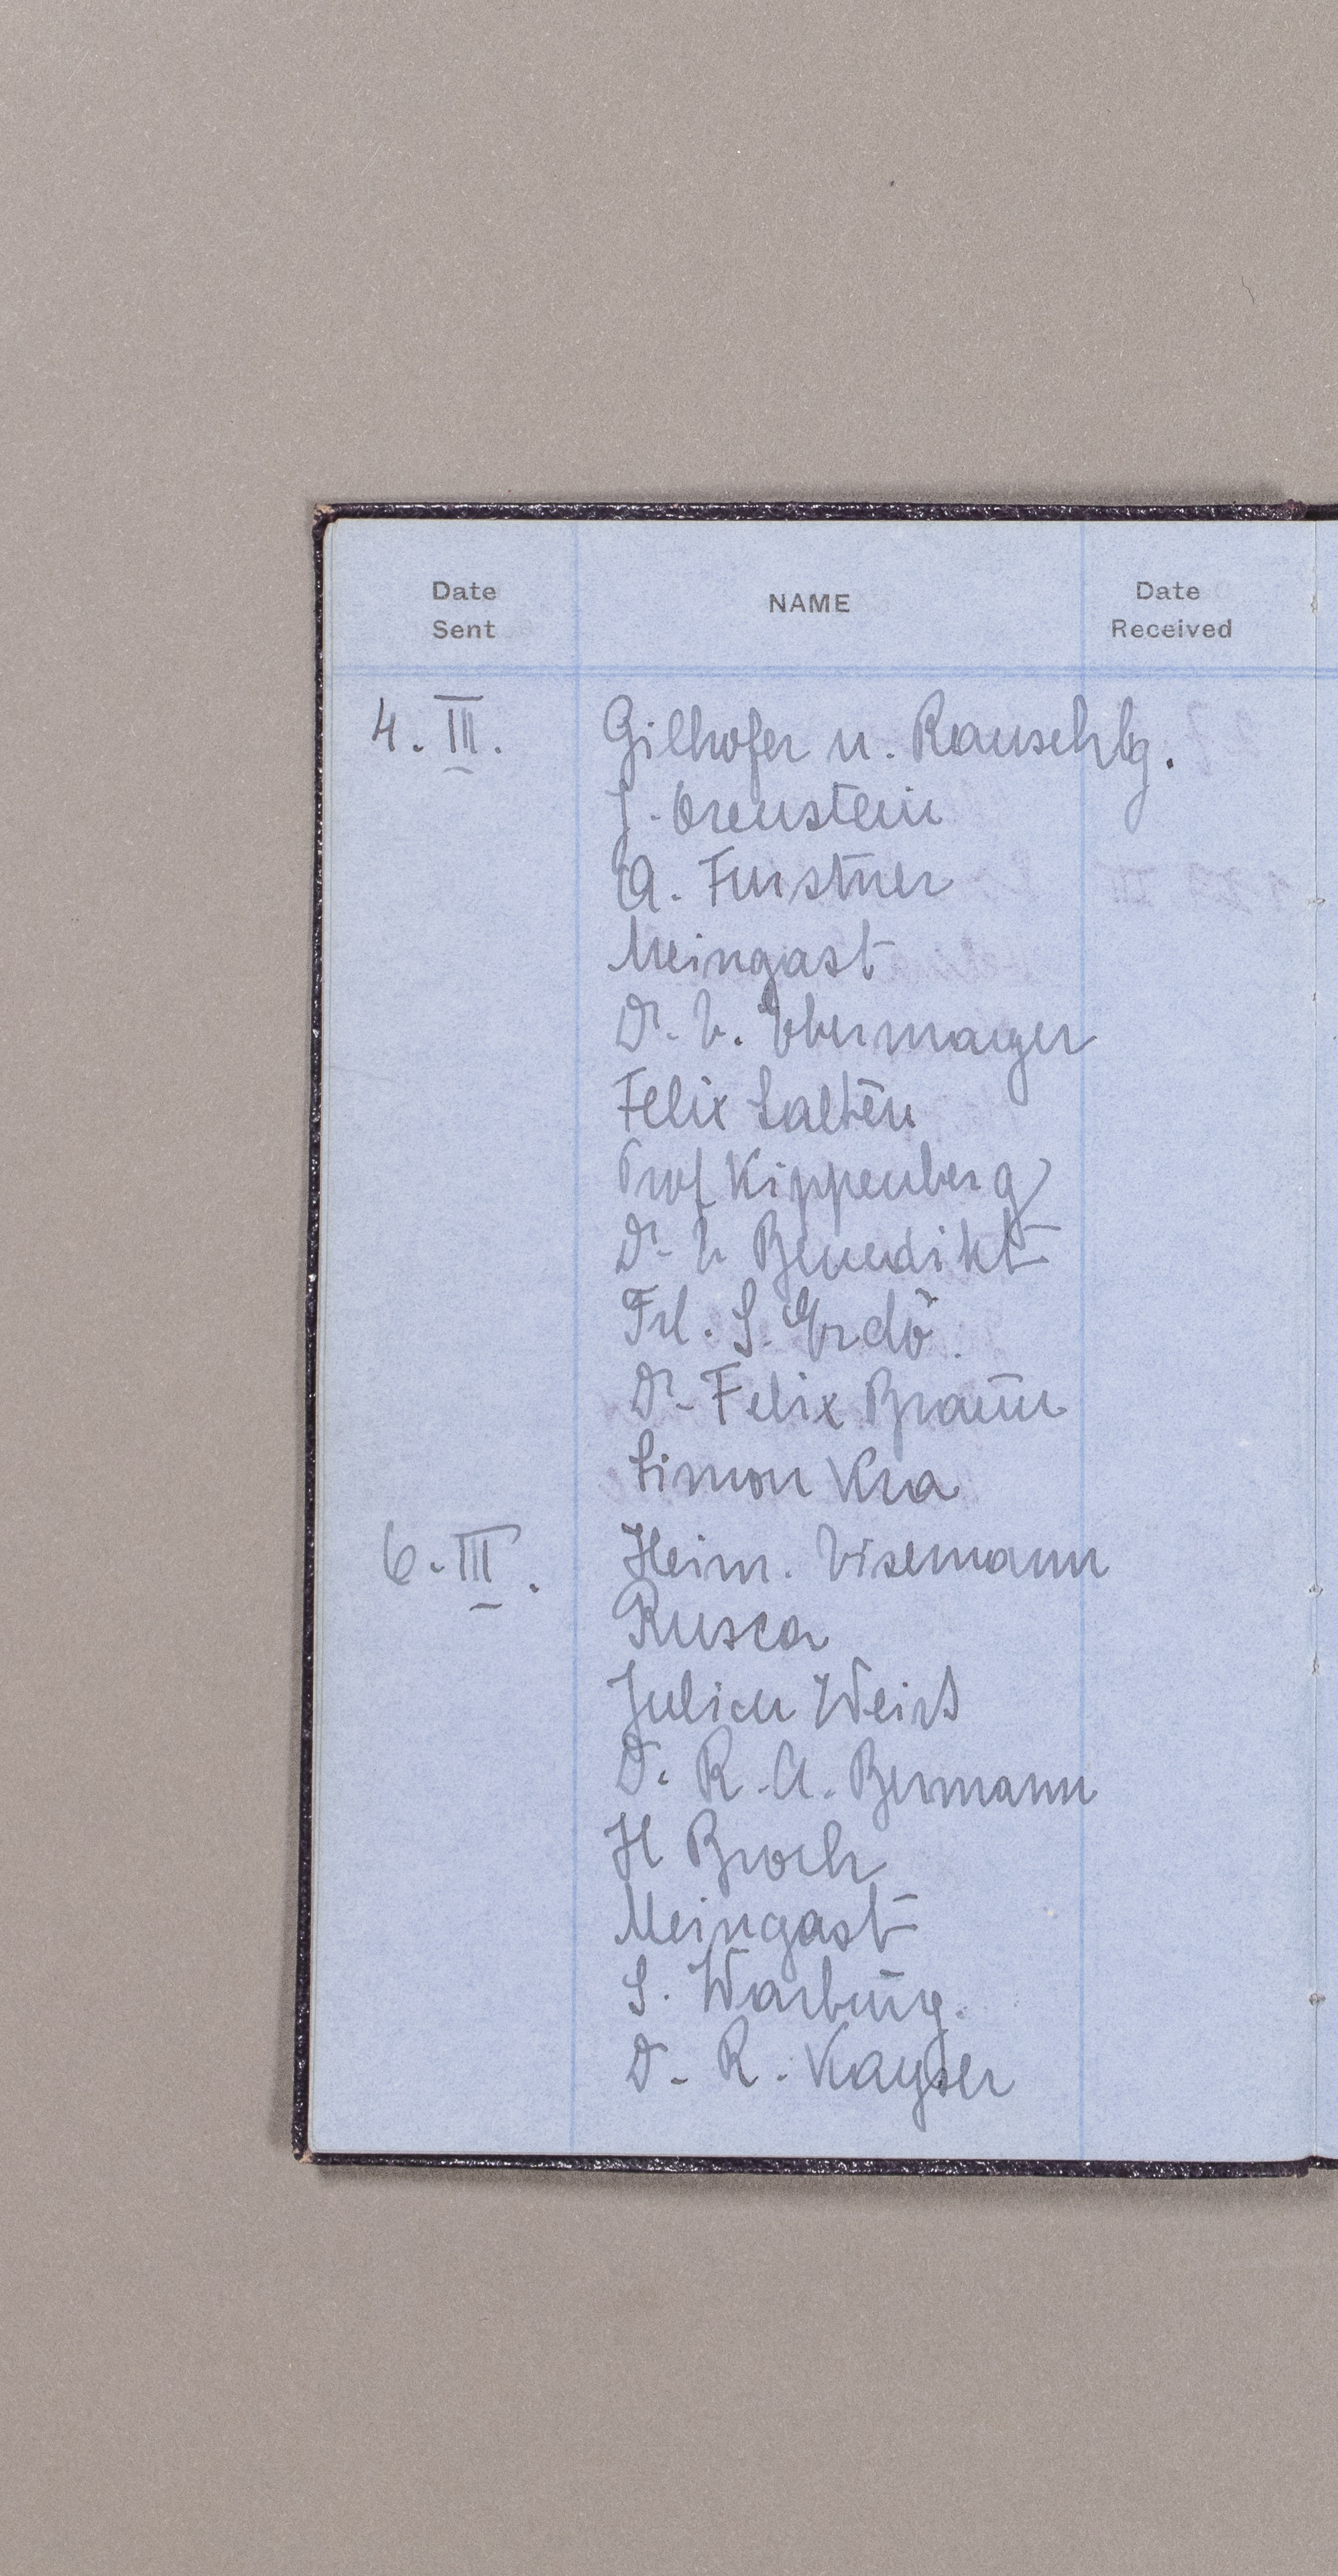 Date Sent NAME Date Received
4. III. Gilhofer u. Rauschbg.
J. Orenstein
A. Furstner
Meingast
Dr. E. Obermayer
Felix Salten
Prof Kippenberg
Dr. E Benedikt
Frl. S. Erdö.
Dr. Felix Braun
Simon Kra
6. III. Heinr. Eisemann
Rusca
Julian Weiß
D. R. A. Bermann
H Broch
Meingast
S. Warburg.
D. R. Kayser